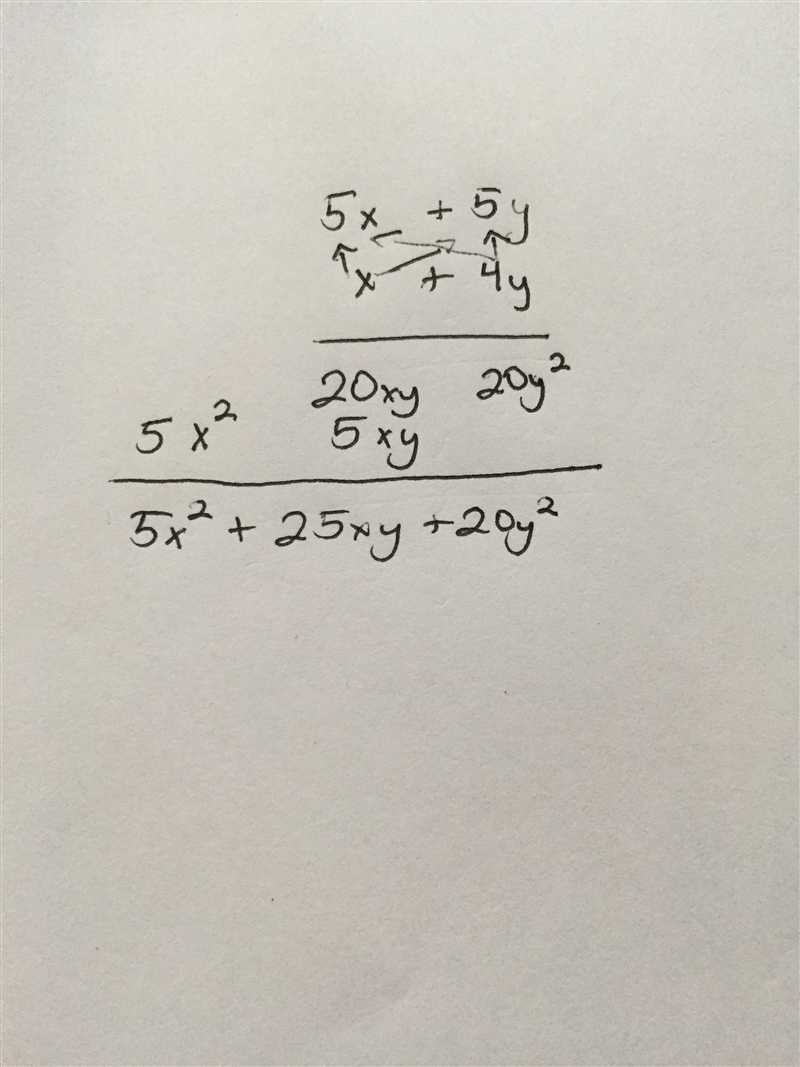 5x + 5y
x + 4y
20xy 20y²
5x² 5xy
5x² + 25xy + 20y²